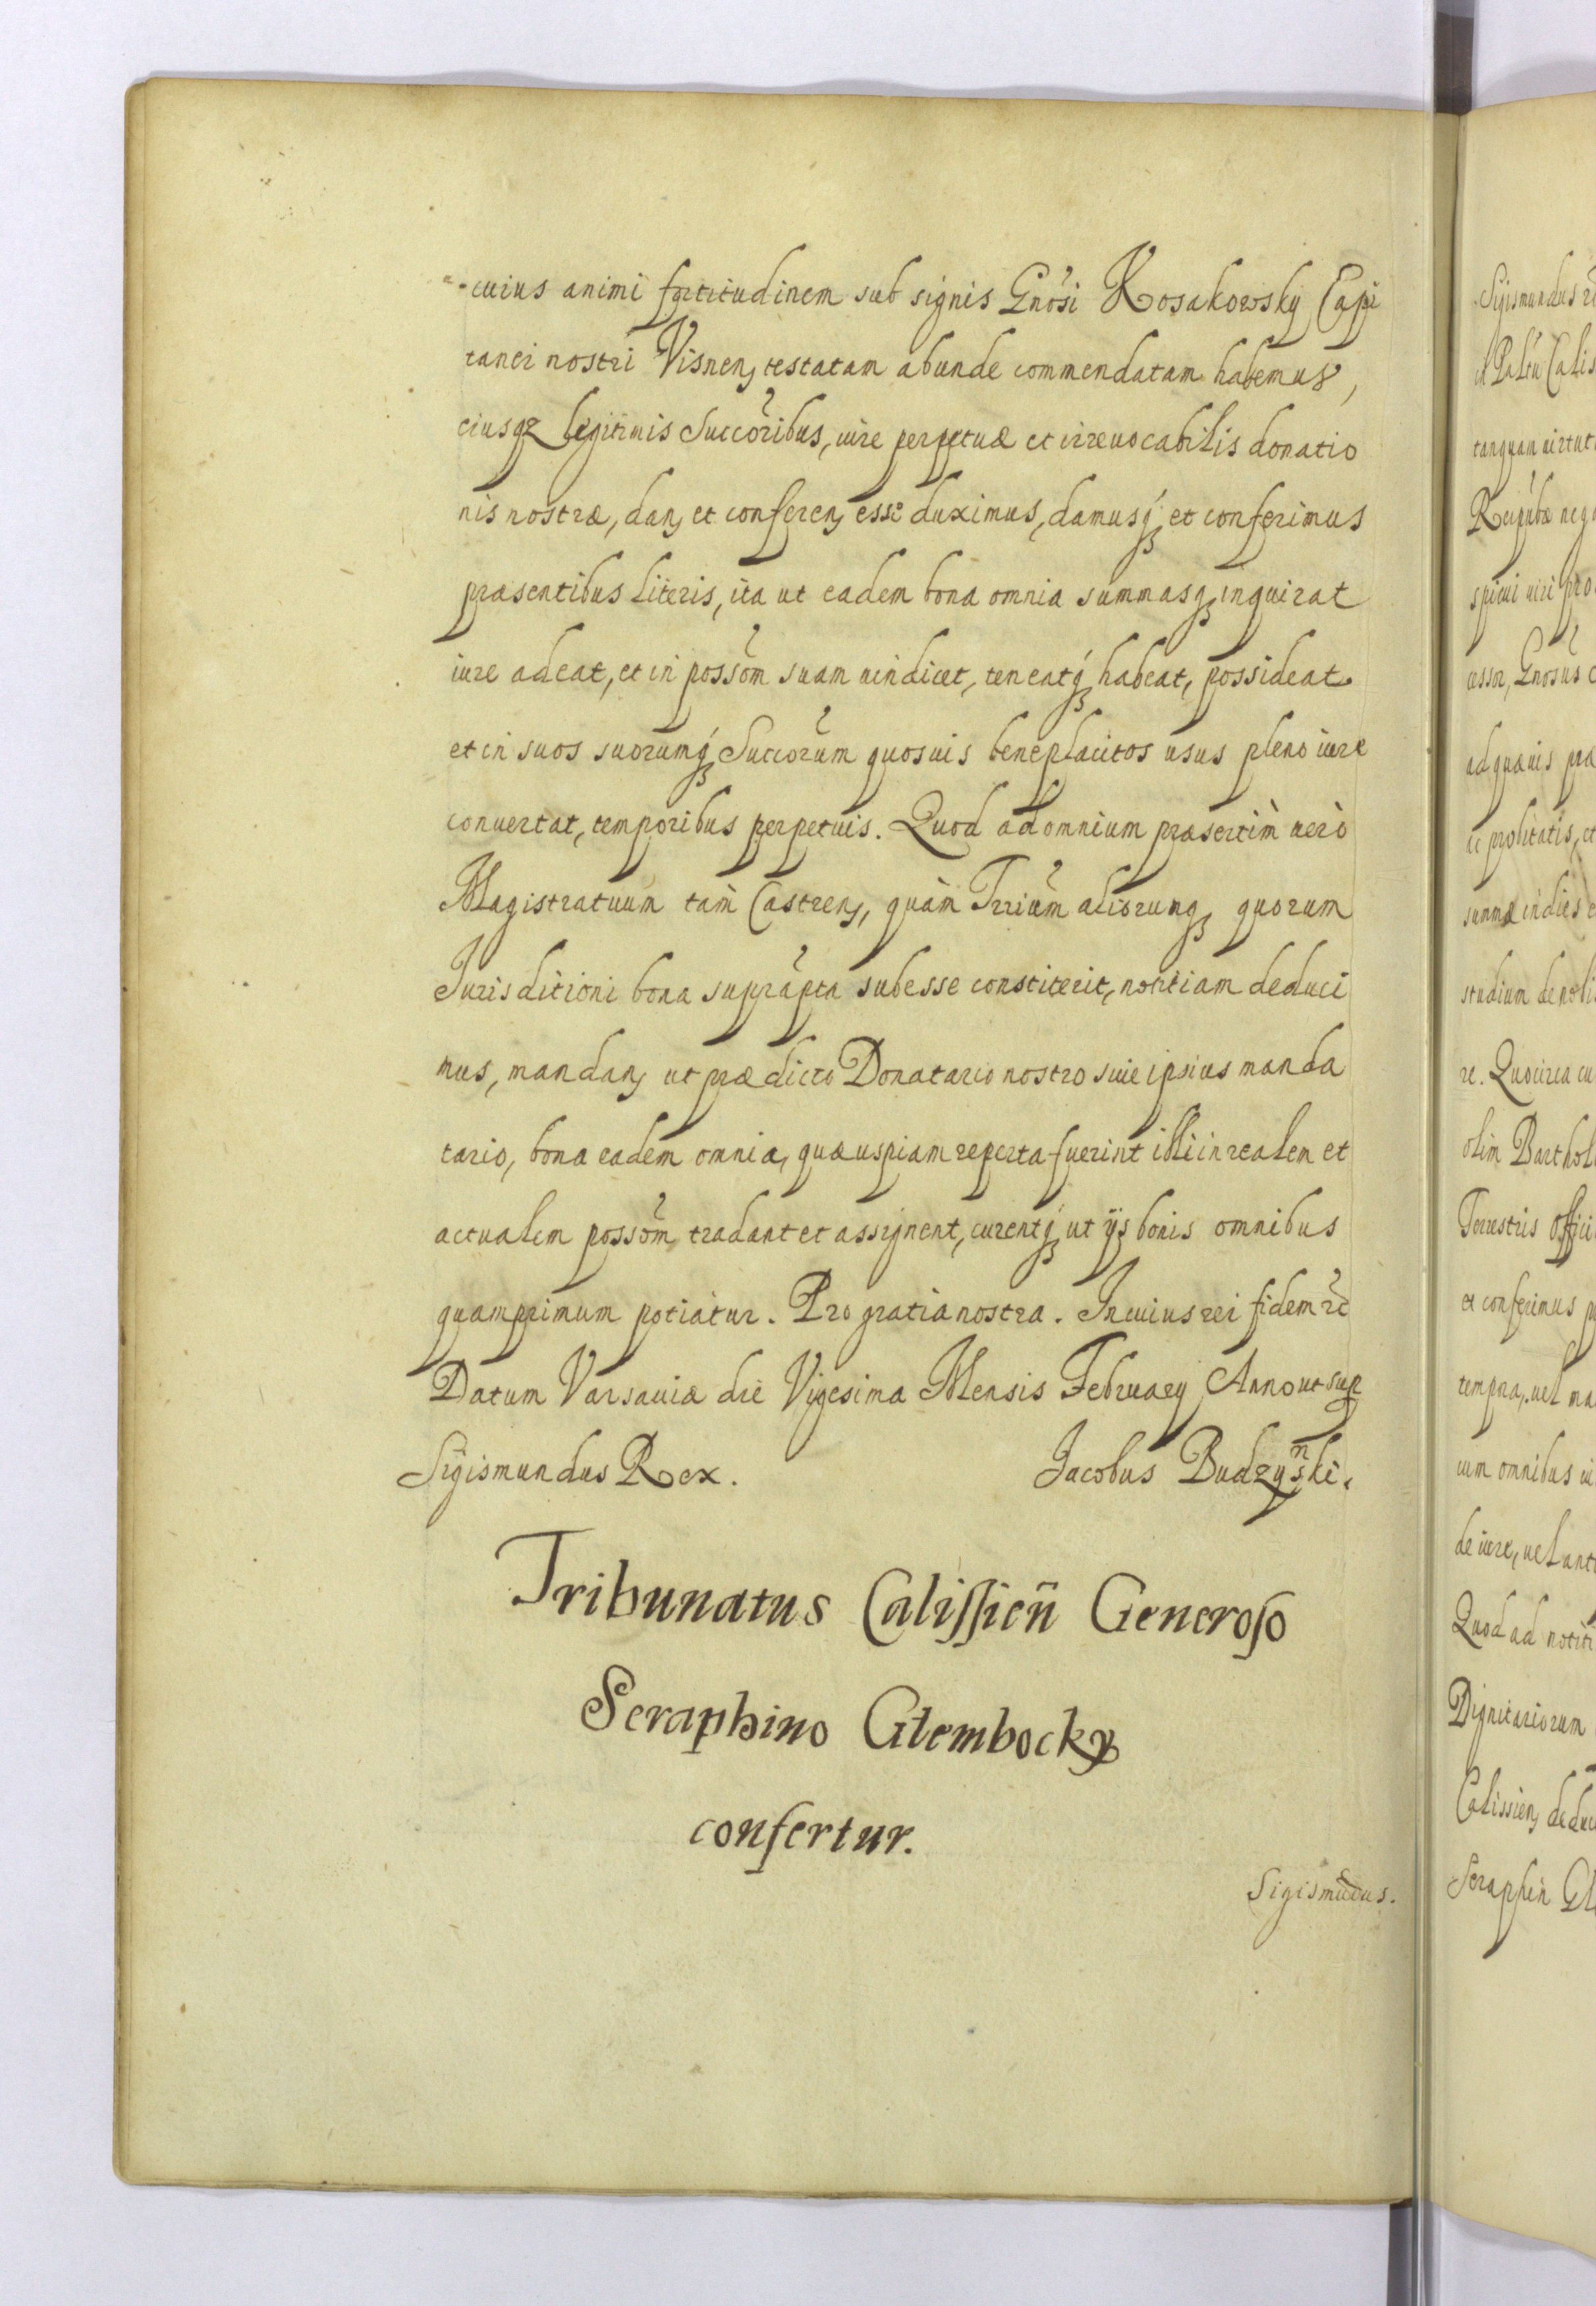 cuius animi fortitudinem sub signis Gnosi Kosakowsky Capi
tanei nostri Visnen, testatam abunde commendatam habemus,
eiusq legitimis Succoribus, iure perpetuæ et irreuocabilis donatio
nis nostræ, dan, et conferen, esse duximus, damusq, et conferimus
præsentibus literis, ita ut eadem bona omnia summasq, inquirat
iure adeat, et in possom suam uindicet, teneatq, habeat, possideat
et in suos suorumq, Succorum quosuis beneplacitos usus pleno iure
conuertat, temporibus perpetuis. Quod ad omnium præsertìm uerò
Magistratuum tàm Castren, quàm Trrium aliorumq, quorum
Jurisditioni bona suprapta subesse constiterit, notitiam deduci
mus, mandan, ut prædicto Donatario nostro siue ipsius manda
tario, bona eadem omnia, quæ uspiam reperta fuerint illi in realem et
actualem possom tradant et assignent, curentq, ut ijs bonis omnibus
quamprimum potiatur. Pro gratia nostra. In cuius rei fidem rc
Datum Varsauiæ die Vigesima Mensis February Anno ut sup
Sigismundus Rex. Jacobus Budzynski.
Tribunatus Calissien Generoso
Seraphino Glembocky
confertur.
Sigismudus.
Sigismundus
tanquam
Quocirca
olim
Terrestris
et conferimus
cum omnibus
Quod ad
Dignitariorum
Calissien,
Seraphin